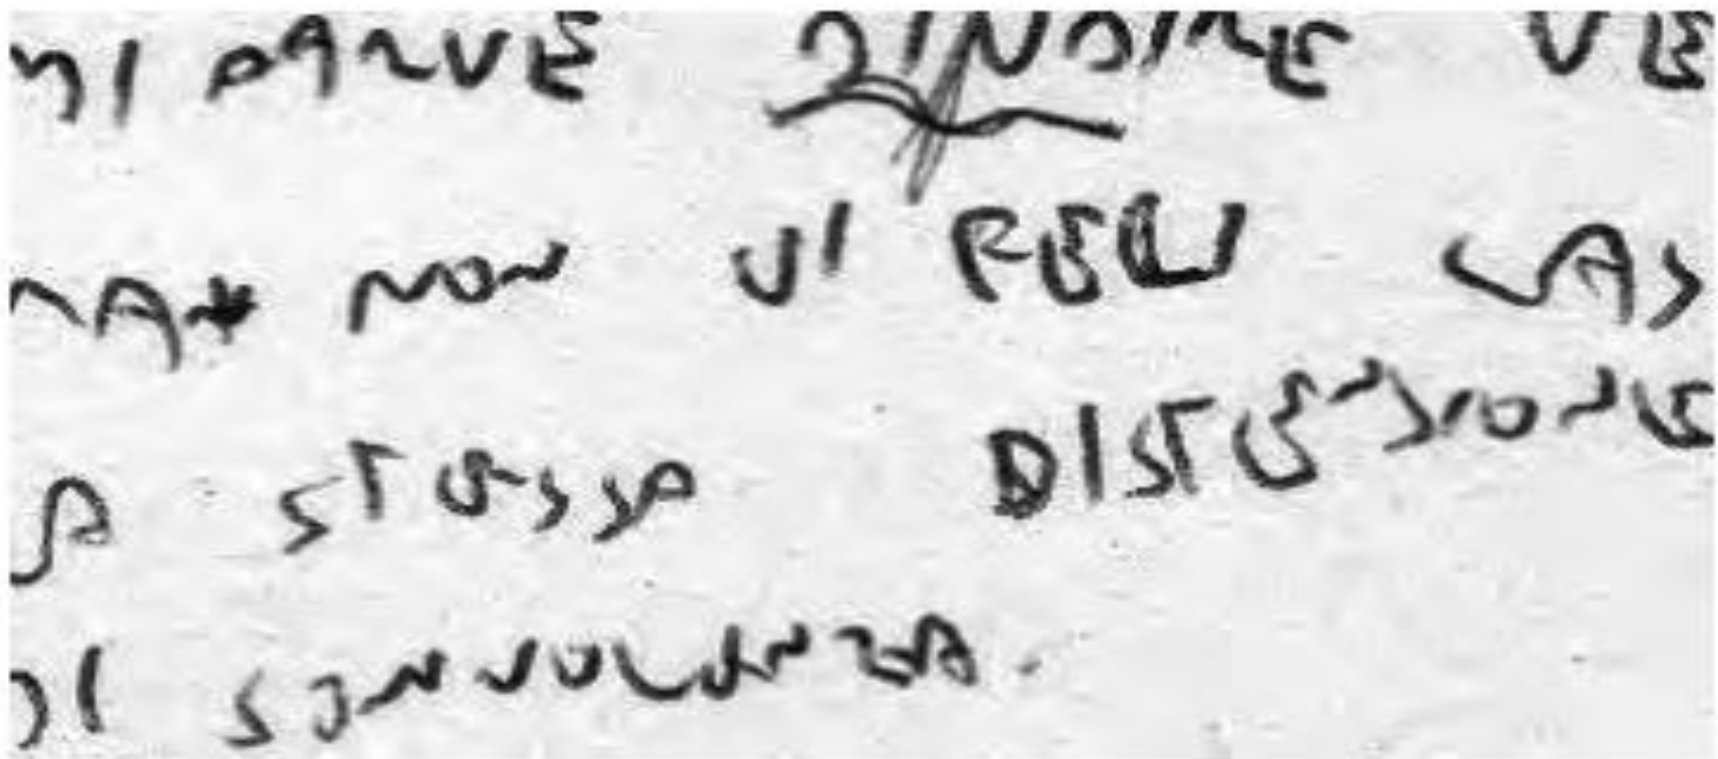 MI PARVE DI NDIRE VE
MA NON VI FECI CAS
A STESSA DISTENSIONE
DI SONNOLENZA.